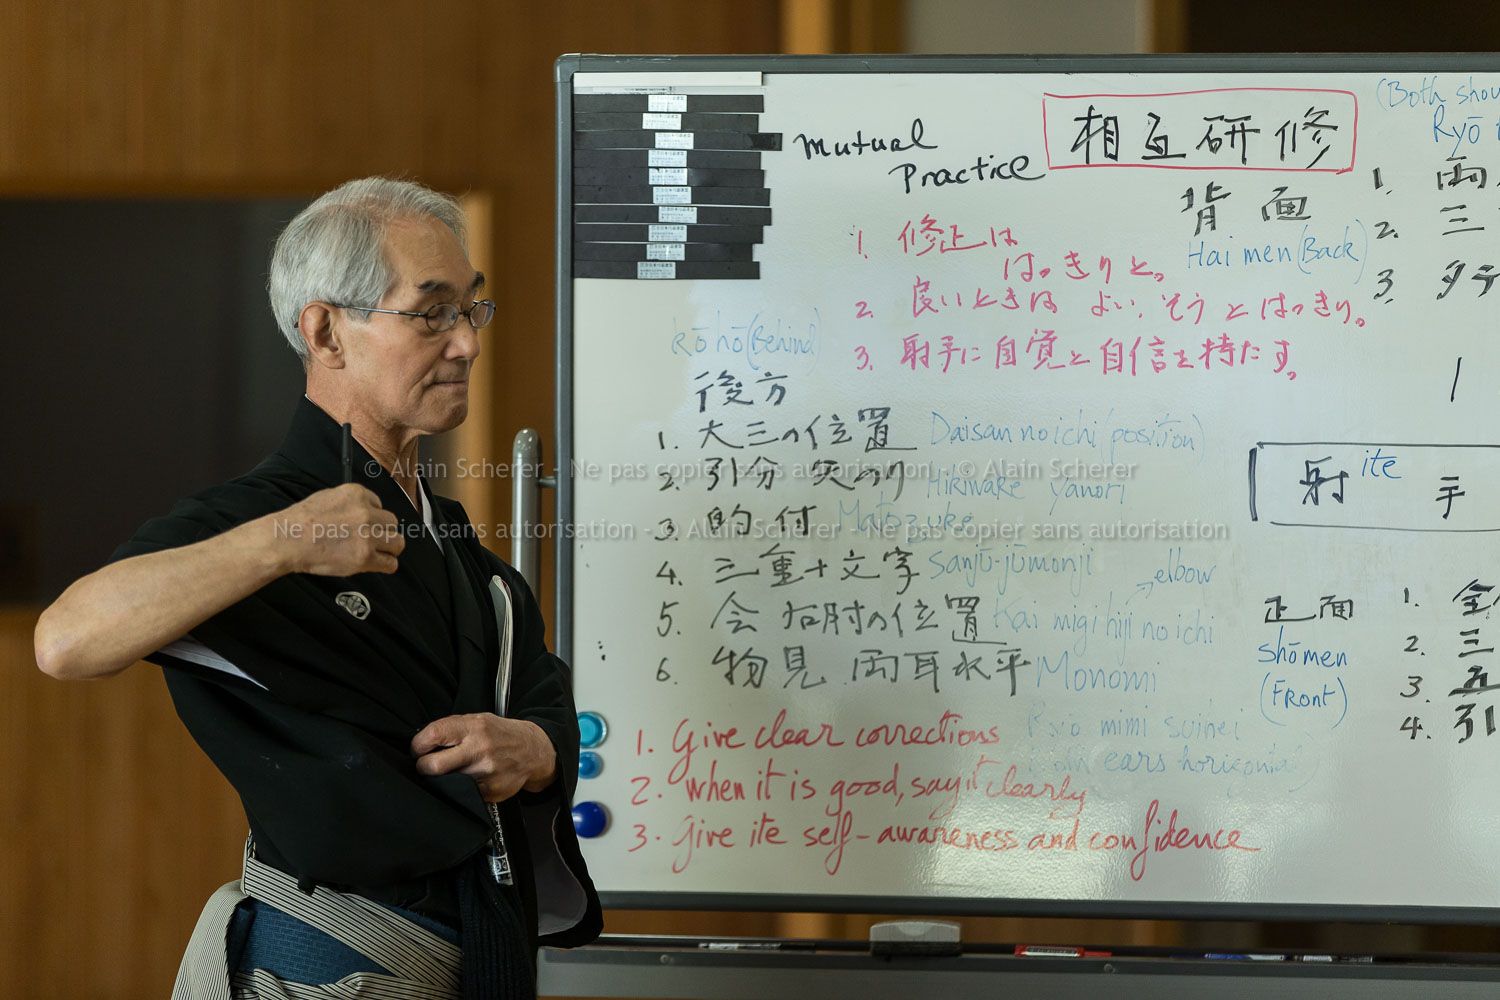 mutual
Practice
相互研修
背面
Hai men (Back)
1. 修正は
はっきりと。
2. 良いときは よい、そうとはっきり。
3. 射手に自覚と自信を持たす。
(Both shou
Ryō
1. 両
2. 三
3. タテ
kōhō (Behind)
後方
1. 大三の位置 Daisan no ichi (position)
2. 引分 矢のり Hikiwake Yanori
3. 的付 Matozuke
4. 三重十文字 Sanjū-jūmonji
5. 会 右肘の位置 Kai migi hiji no ichi
elbow
6. 物見 両耳水平 Monomi
Ryō mimi suihei
ears horizontal)
射 ite 手
正面
shōmen
(Front)
1. 全
2. 三
3. 五
4. 引
1. Give clear corrections
2. when it is good, say it clearly
3. Give ite self-awareness and confidence
© Alain Scherer - Ne pas copier sans autorisation - © Alain Scherer
Ne pas copier sans autorisation - © Alain Scherer - Ne pas copier sans autorisation